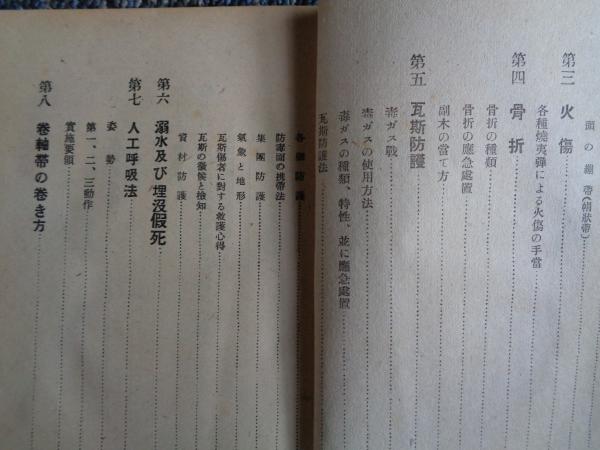 頭の繃帶(帽狀帶)
第三 火傷
各種燒夷彈による火傷の手當
第四 骨折
骨折の種類
骨折の應急處置
副木の當て方
第五 瓦斯防護
毒ガス戰
毒ガスの使用方法
毒ガスの種類、特性、並に應急處置
瓦斯防護法
各個防護
防毒面の携帶法
集團防護
氣象と地形
瓦斯傷者に對する救護心得
瓦斯の徵候と檢知
資材防護
第六 溺水及び埋沒假死
第七 人工呼吸法
姿勢
第一、二、三動作
實施要領
第八 卷軸帶の卷き方